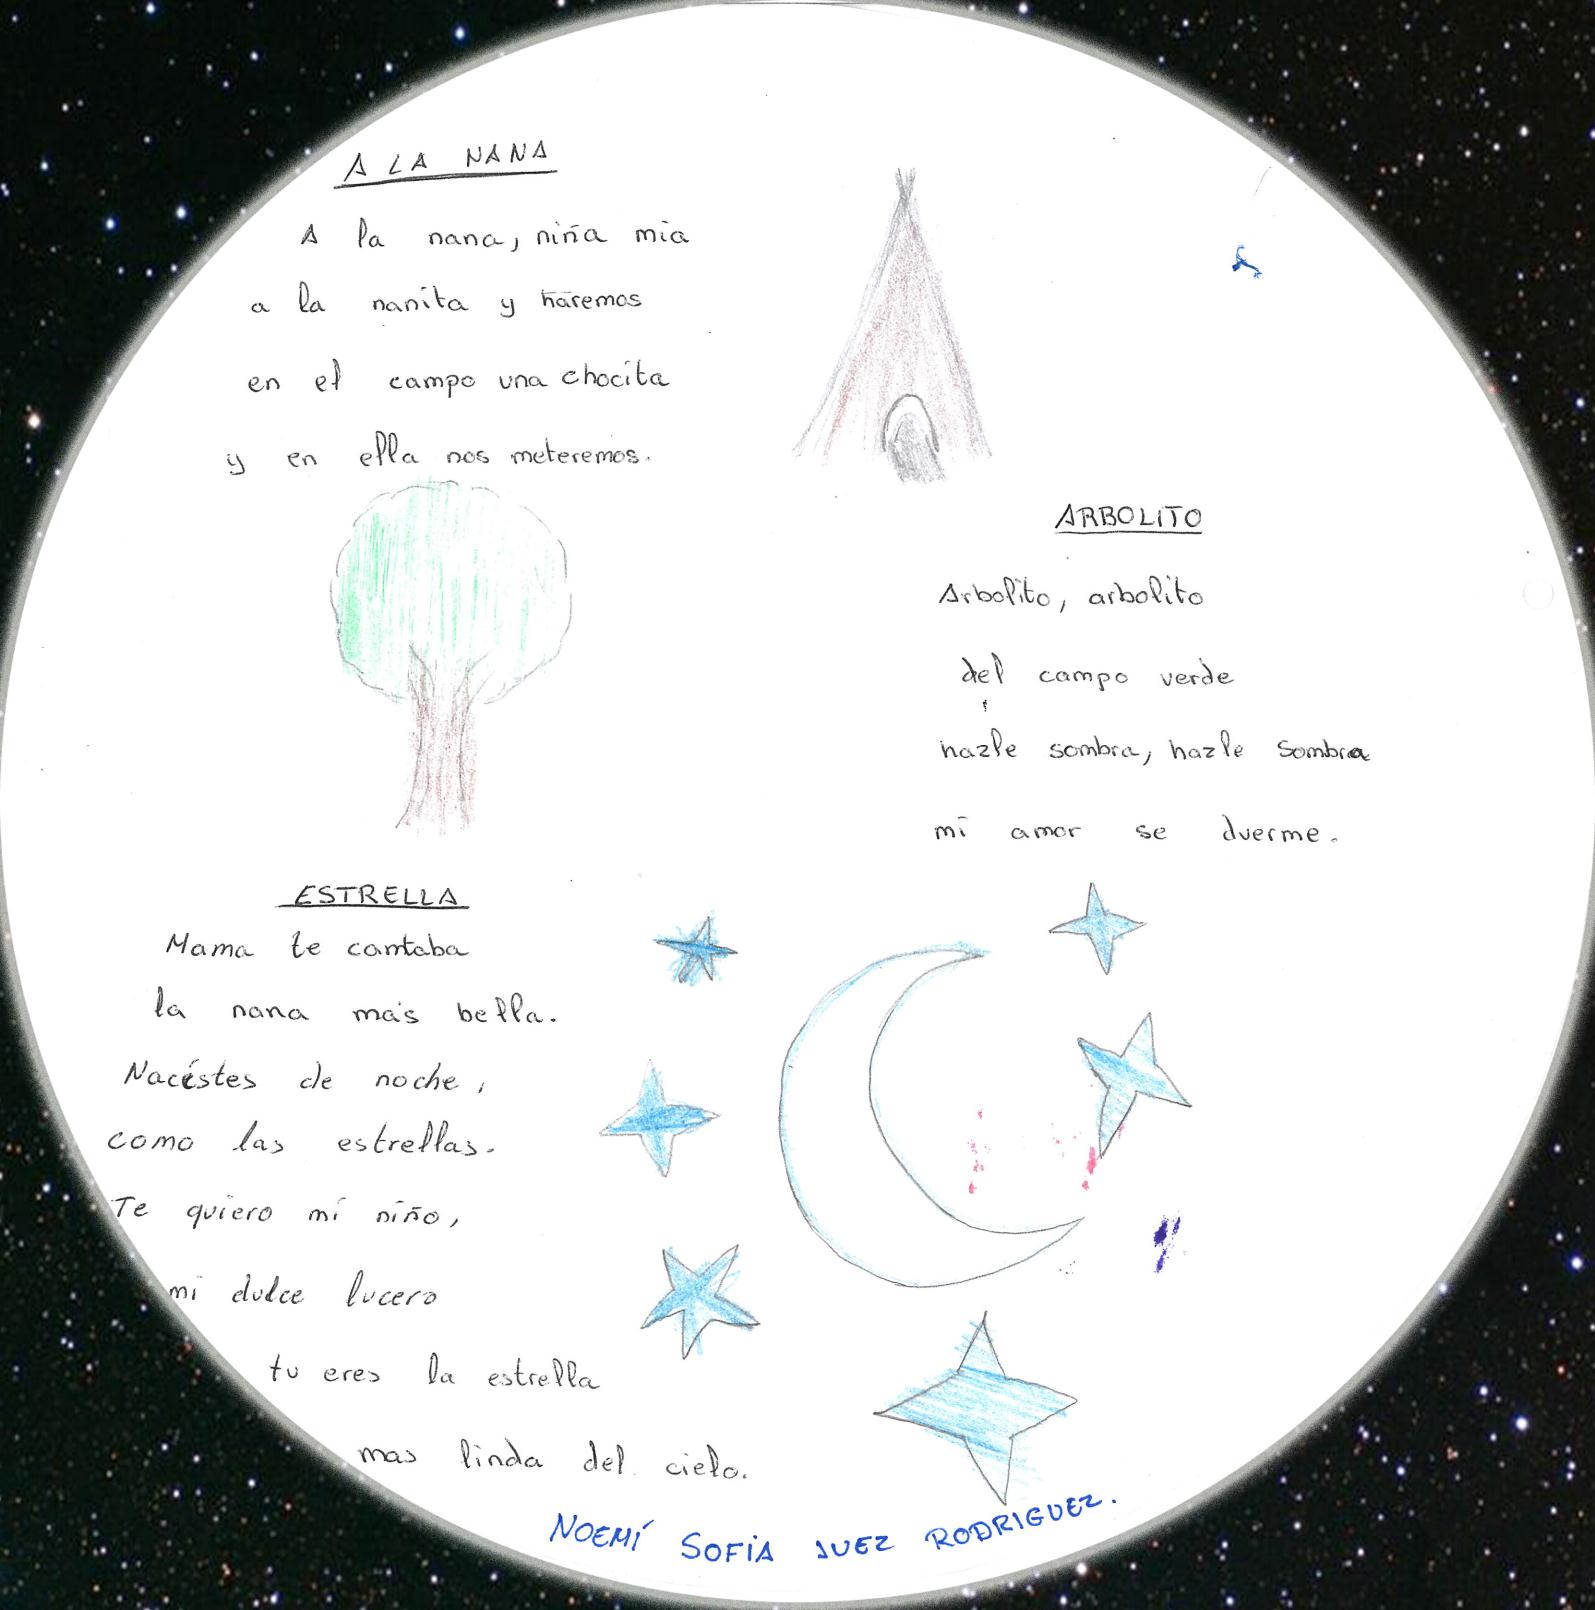 A LA NANA
A la nana, niña mia
a la nanita y haremos
en el campo una chocita
y en ella nos meteremos.
ARBOLITO
Arbolito, arbolito
del campo verde
hazle sombra, hazle sombra
mi amor se duerme.
ESTRELLA
Mama te cantaba
la nana más bella.
Nacistes de noche,
como las estrellas.
Te quiero mi niño,
mi dulce lucero
tu eres la estrella
mas linda del cielo.
NOEMÍ SOFIA JUEZ RODRIGUEZ.